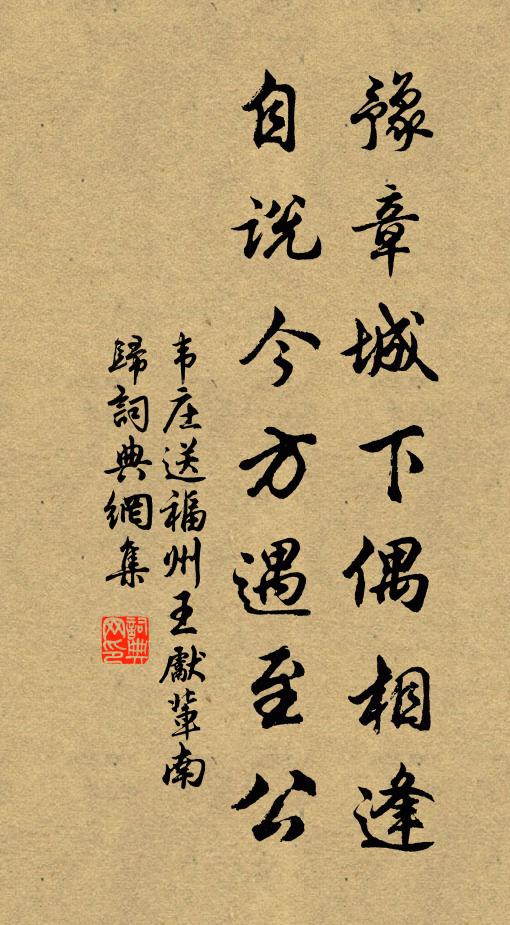 豫章城下偶相逢
自说今方遇至公
韦庄送福州王獻輩南
歸詞典網集
詞典网印